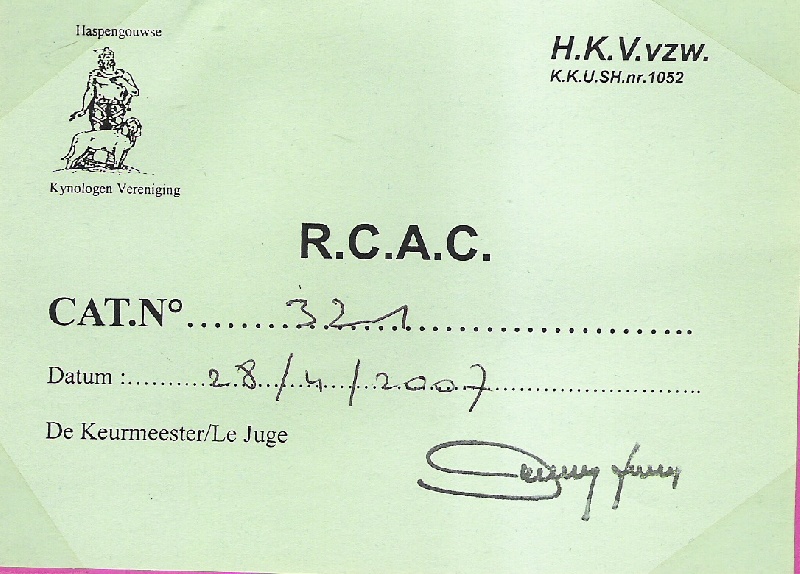 Haspengouwse
H.K.V.vzw.
K.K.U.SH.nr.1052
Kynologen Vereniging
R.C.A.C.
CAT.N° 321
Datum : 28/4/2007
De Keurmeester/Le Juge